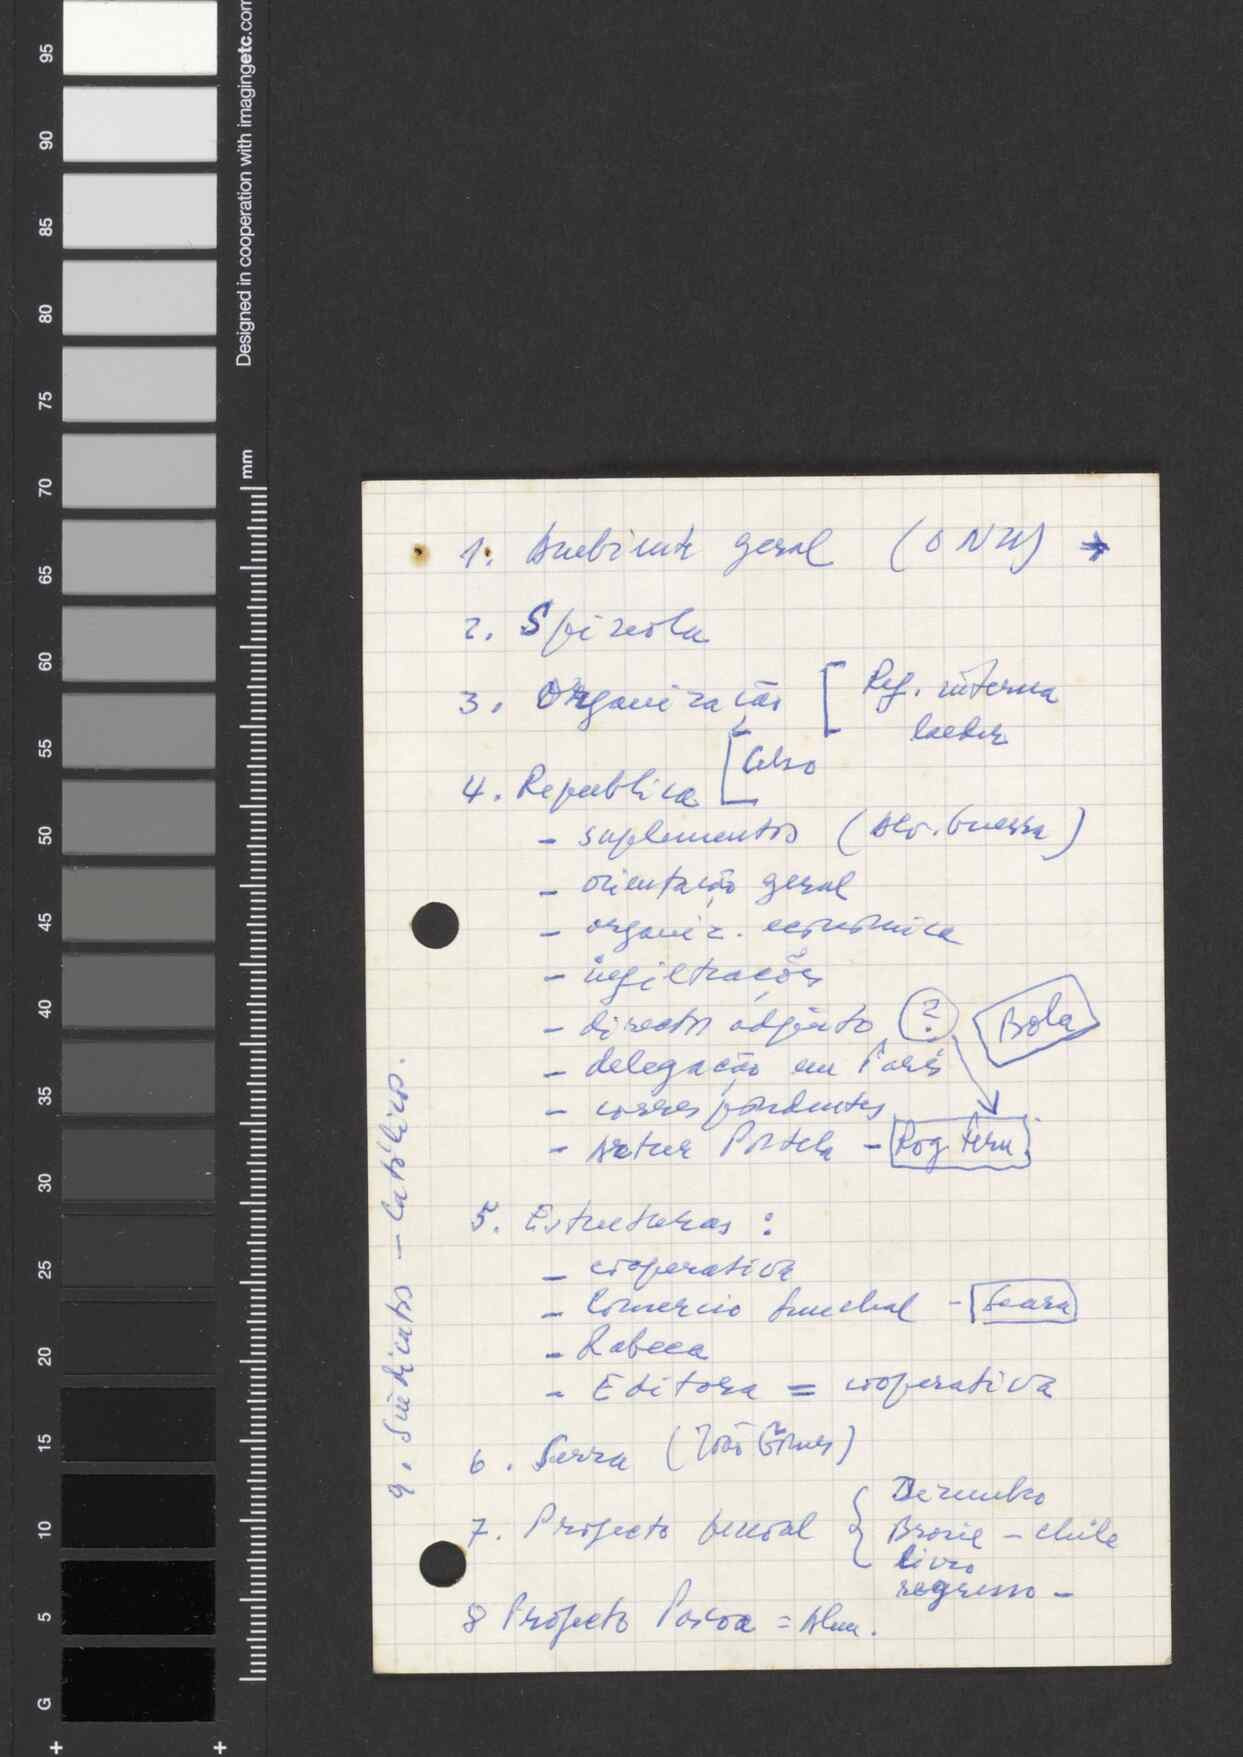 95
90
85
80
75
70
65
60
55
50
45
40
35
30
25
20
15
10
5
G
Designed in cooperation with imagingetc.com
mm
1. Ambiente geral (ONU)
2. Spinola
3. Organização [ Ref. interna
Celso
4. Republica
- suplementos (Alv. Guerra)
- orientação geral
- organiz. económica
- infiltrações
- director adjunto ? Bola
- delegação em Paris
- correspondentes
- Artur Portela - Rog. Fern.
5. Estruturas :
- cooperativa
- Comercio Funchal - Seara
- Rabeca
- Editora = cooperativa
6. Serra (João Gomes)
7. Projecto pessoal { Dezembro
Brasil - Chile
livro
regresso -
8 Projecto Páscoa = Alm.
9. Sindicatos - Católicos.